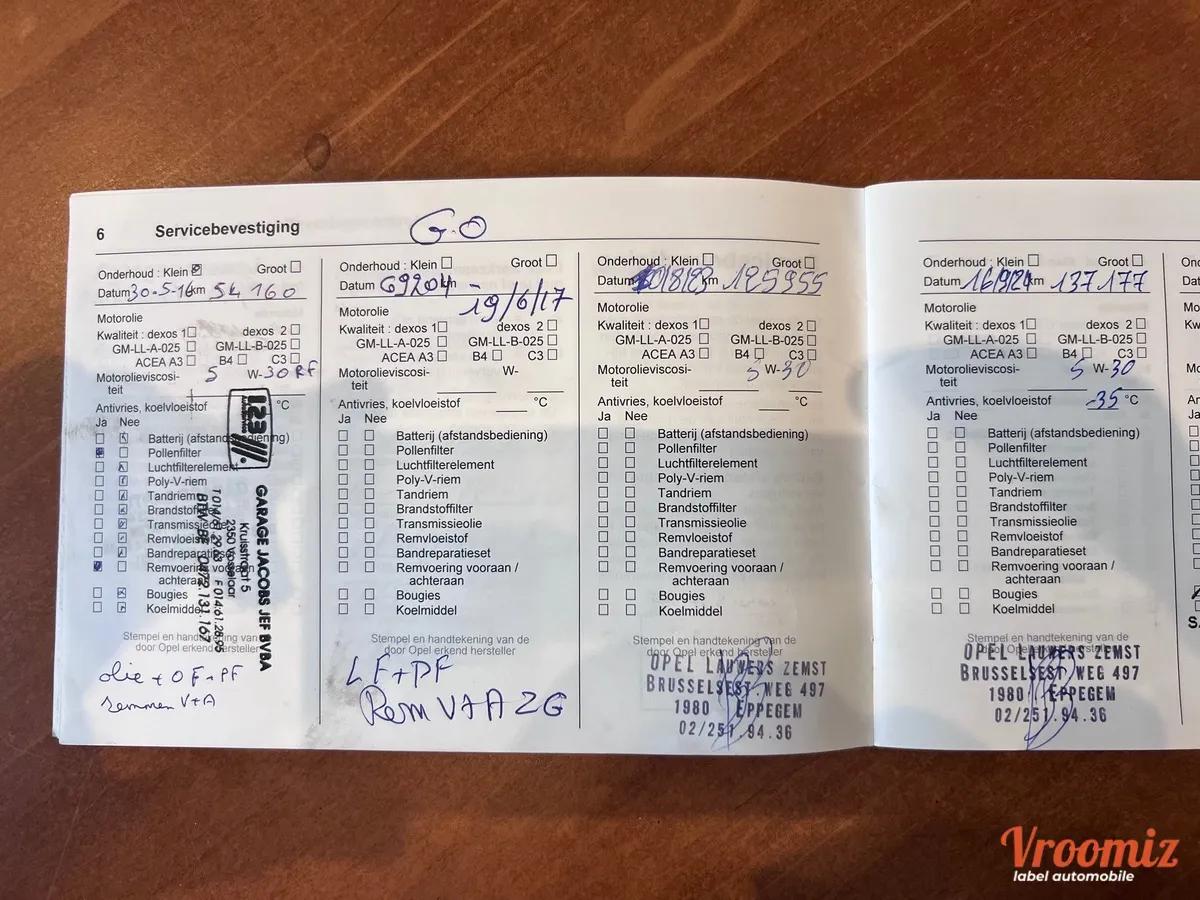 6 Servicebevestiging
G.O
Onderhoud : Klein Groot
Datum 30-5-16 km 54 160
Motorolie
Kwaliteit : dexos 1 dexos 2
GM-LL-A-025 GM-LL-B-025
ACEA A3 B4 C3
Motorolieviscosi- 5 W-30 RF
teit
Antivries, koelvloeistof °C
Ja Nee
Batterij (afstandsbediening)
Pollenfilter
Luchtfilterelement
Poly-V-riem
Tandriem
Brandstoffilter
Transmissieolie
Remvloeistof
Bandreparatieset
Remvoering vooraan /
achteraan
Bougies
Koelmiddel
Stempel en handtekening van de
door Opel erkend hersteller
123
GARAGE JACOBS JEF BVBA
Kruisstraat 5
2350 Vosselaar
T 014/61.29.63 F 014.61.28.95
BTW BE 0422.131.167
olie + OF + PF
remmen V+A
Onderhoud : Klein Groot
Datum 69204 -
19/6/17
Motorolie
Kwaliteit : dexos 1 dexos 2
GM-LL-A-025 GM-LL-B-025
ACEA A3 B4 C3
Motorolieviscosi- W-
teit
Antivries, koelvloeistof °C
Ja Nee
Batterij (afstandsbediening)
Pollenfilter
Luchtfilterelement
Poly-V-riem
Tandriem
Brandstoffilter
Transmissieolie
Remvloeistof
Bandreparatieset
Remvoering vooraan /
achteraan
Bougies
Koelmiddel
Stempel en handtekening van de
door Opel erkend hersteller
LF+PF
Rem V+A ZG
Onderhoud : Klein Groot
Datum /8/23 km 125955
Motorolie
Kwaliteit : dexos 1 dexos 2
GM-LL-A-025 GM-LL-B-025
ACEA A3 B4 C3
Motorolieviscosi- 5 W-30
teit
Antivries, koelvloeistof °C
Ja Nee
Batterij (afstandsbediening)
Pollenfilter
Luchtfilterelement
Poly-V-riem
Tandriem
Brandstoffilter
Transmissieolie
Remvloeistof
Bandreparatieset
Remvoering vooraan /
achteraan
Bougies
Koelmiddel
Stempel en handtekening van de
door Opel erkend hersteller
OPEL LAUWERS ZEMST
BRUSSELSEST.WEG 497
1980 EPPEGEM
02/251.94.36
Onderhoud : Klein Groot
Datum 16/9/24 km 137.177
Motorolie
Kwaliteit : dexos 1 dexos 2
GM-LL-A-025 GM-LL-B-025
ACEA A3 B4 C3
Motorolieviscosi- 5 W-30
teit
Antivries, koelvloeistof -35 °C
Ja Nee
Batterij (afstandsbediening)
Pollenfilter
Luchtfilterelement
Poly-V-riem
Tandriem
Brandstoffilter
Transmissieolie
Remvloeistof
Bandreparatieset
Remvoering vooraan /
achteraan
Bougies
Koelmiddel
Stempel en handtekening van de
door Opel erkend hersteller
OPEL LAUWERS ZEMST
BRUSSELSEST.WEG 497
1980 EPPEGEM
02/251.94.36
Vroomiz
label automobile